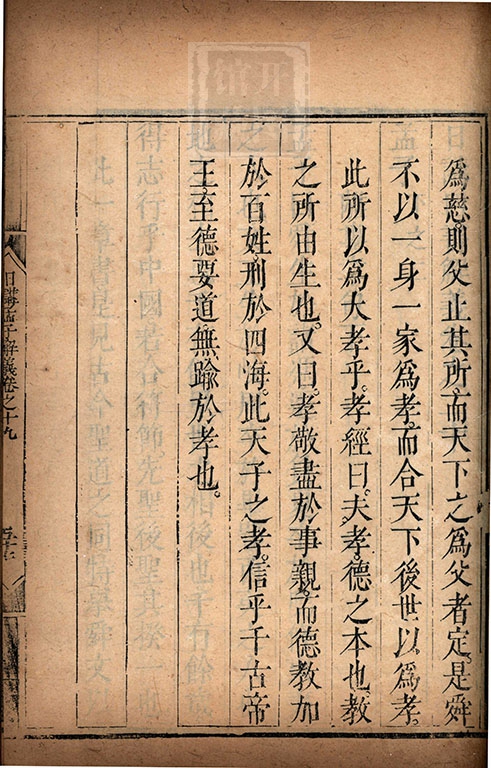 為慈則父止其所而天下之為父者定是舜
不以一身一家為孝而合天下後世以為孝
此所以為大孝乎孝經曰夫孝德之本也教
之所由生也又曰孝敬盡於事親而德教加
於百姓刑於四海此天子之孝信乎千古帝
王至德要道無踰於孝也
日講孟子解義卷之十九